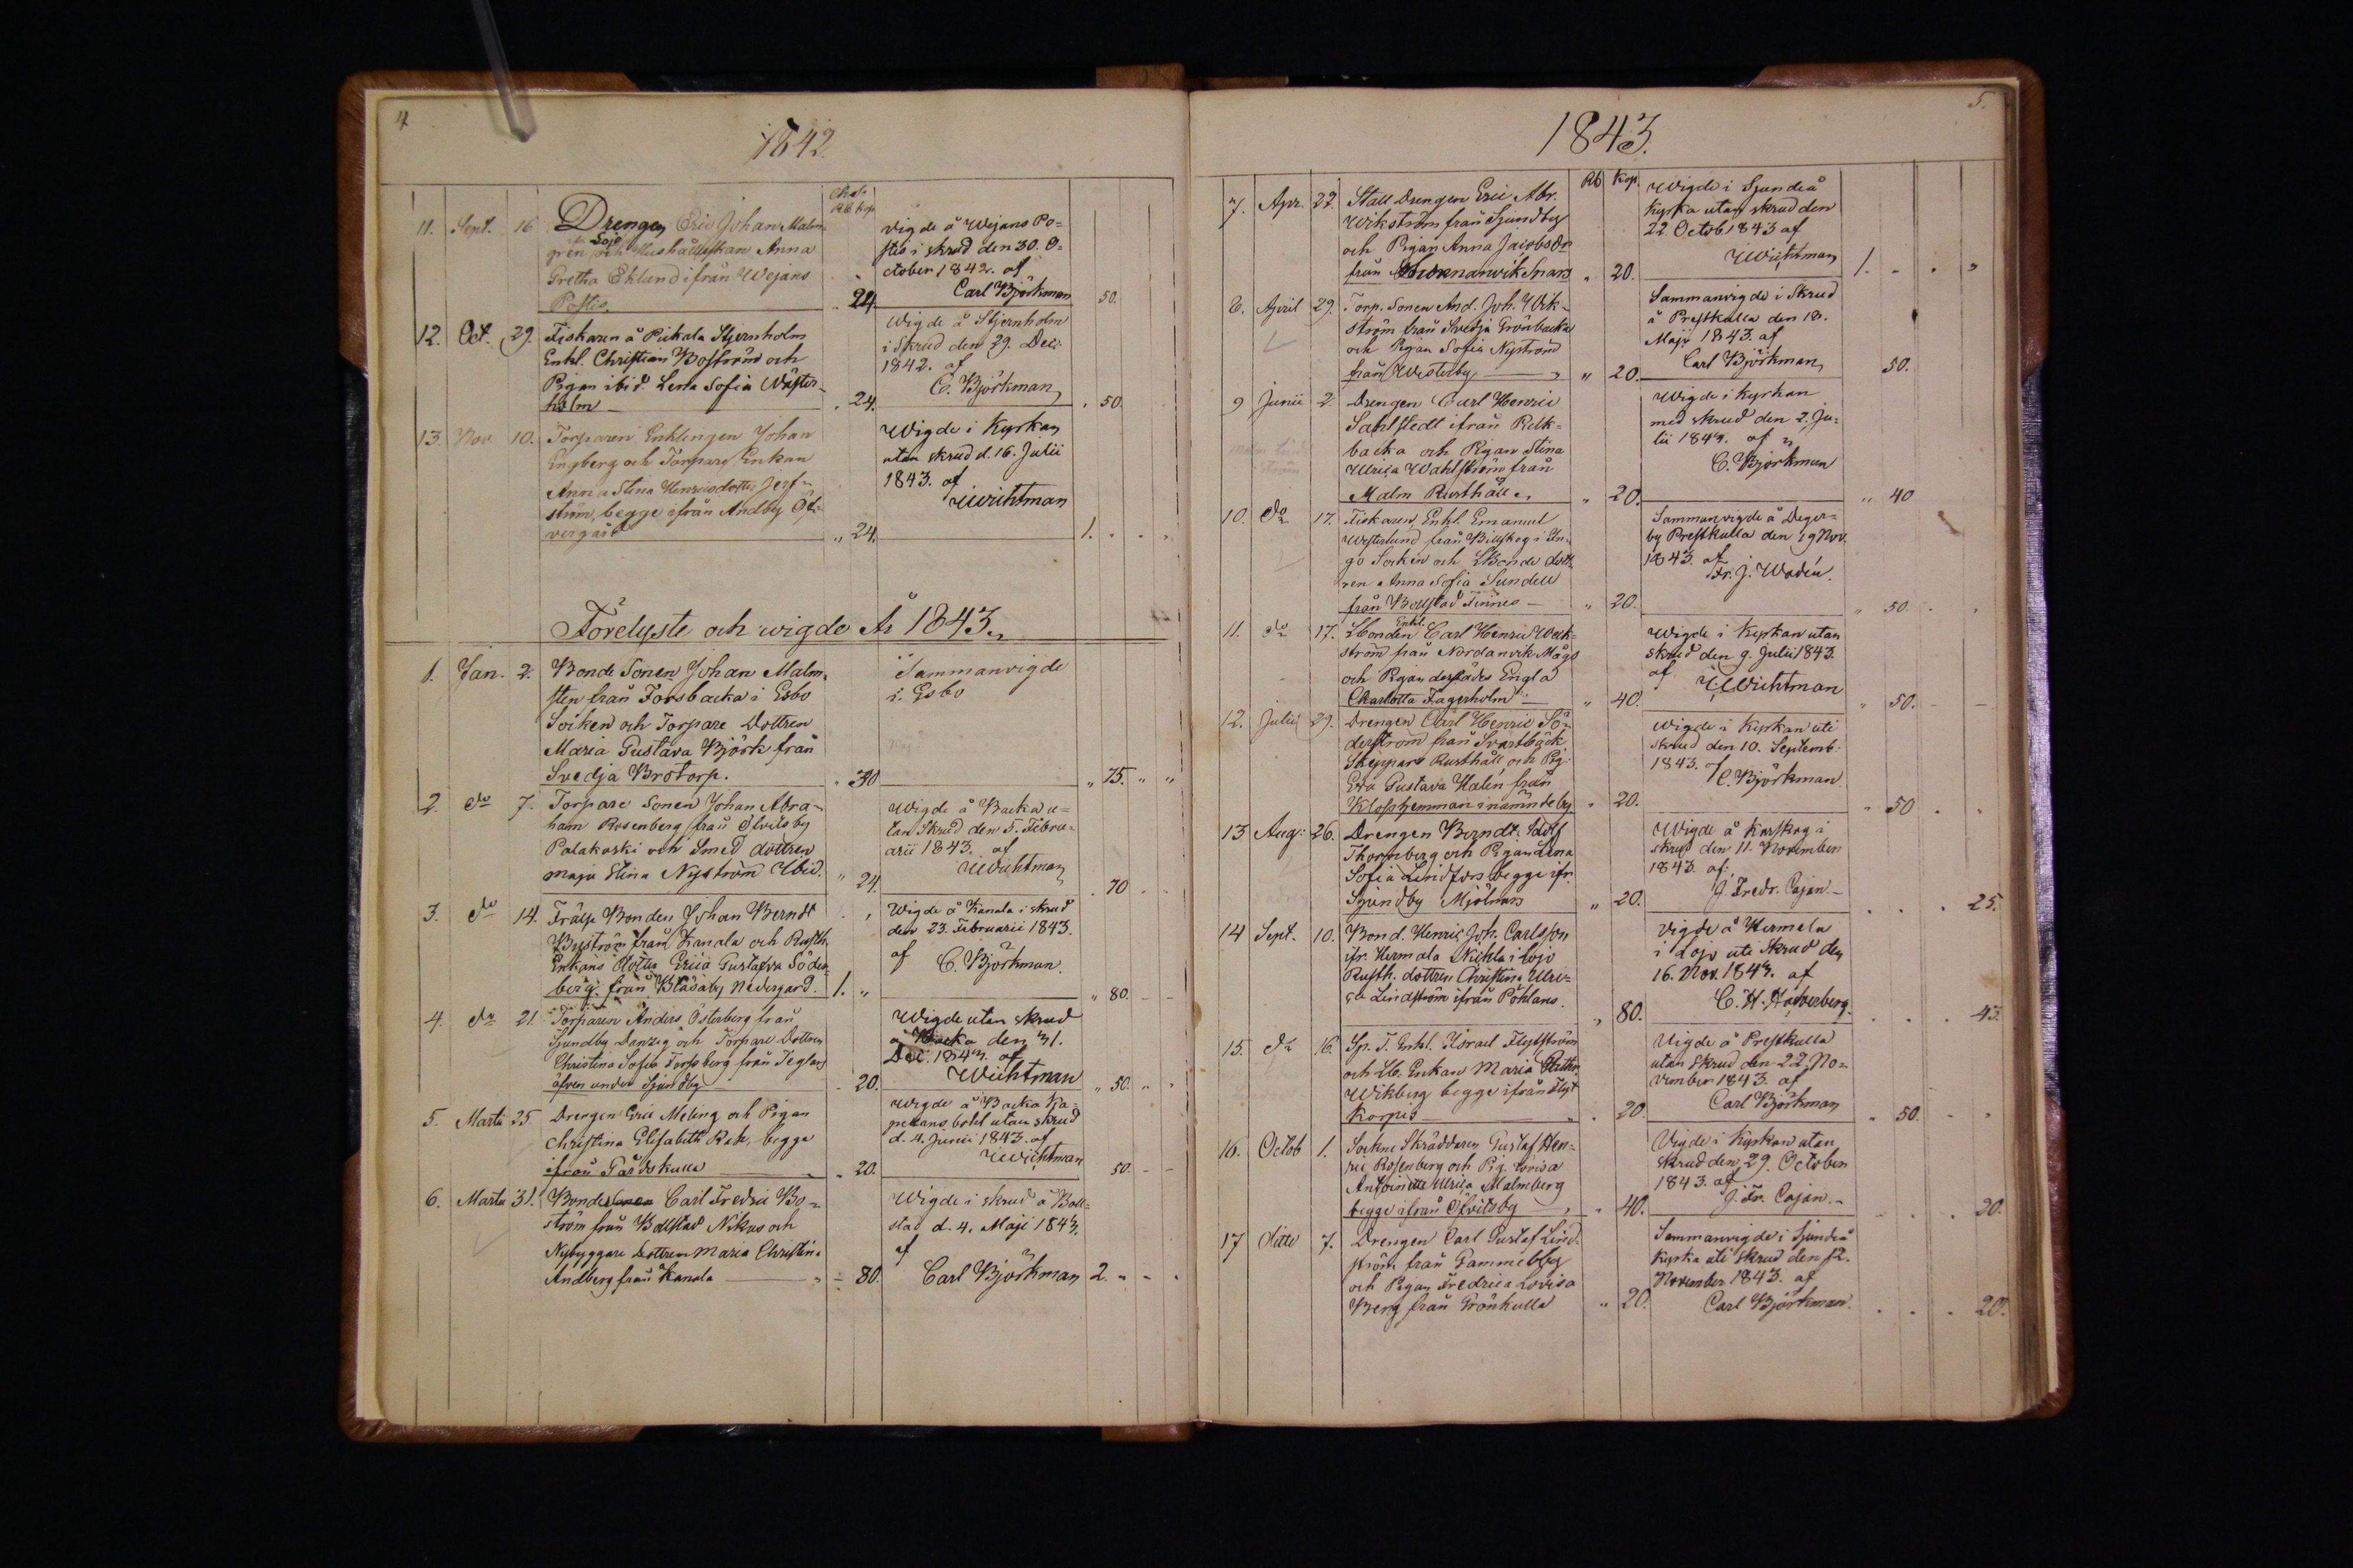 4
1842.
Rb. Kop
11. Sept. 16 Drengen Eric Johan Malm-
gren från Lojo och Hushållerskan Anna
Gretha Eklund ifrån Wejans
Postis. 24.
Vigde å Wejans Po=
stis i skrud den 30. O=
ctober 1842. af
Carl Björkman 50.
12. Oct. 29. Fiskaren å Pikala Stjernholm
Enkl. Christian Boström och
Pigan ibid. Lena Sofia Wäster-
holm 24.
Wigde å Stjernholm
i skrud den 29. Dec:
1842. af
C. Björkman 50.
13. Nov 10. Torparen Enklingen Johan
Engberg och Torpare Enkan
Anna Stina Henricsdotter Jerf-
ström, begge ifrån Andby Öf-
vergård „ 24.
Wigde i Kyrkan
utan skrud d. 16. Julii
1843. af
Wichtman 1.
Förelyste och wigde År 1843.
1. Jan. 2. Bonde Sonen Johan Malm-
sten från Forsbacka i Esbo
Socken och Torpare Dottren
Maria Gustava Björk från
Svedja Brotorp. 30
Sammanvigde
i Esbo
„ 75. „ „
2. do 7. Torpare Sonen Johan Abra-
ham Rosenberg från Ölvitsby
Palakoski och Smed dottren
Maja Stina Nyström Ibid. „ 24.
Wigde å Backa u=
tan Skrud den 5. Febru=
arii 1843. af
Wichtman 70
3. do 14. Frälse Bonden Johan Berndt
Byström från Kanala och Rusth.
Enkans dotter Erica Gustafva Söder-
berg från Blåsaby Nedergård. 1. „
Wigde å Kanala i skrud
den 23. Februarii 1843.
af C. Björkman.
„ 80.
4. do 21. Torparen Anders Österberg från
Sjundby Danzig och Torpare Dottren
Christina Sofia Forssberg från Teglars
äfven under Sjundby 20.
Wigde utan skrud
å Backa den 31.
Dec. 1843. af
Wichtman „ 50. „
5. Martii 25. Drengen Eric Meling och Pigan
Christina Elisabeth Rek, begge
ifrån Gårdskulla 20.
Wigde å Backa Ka-
pellans bohl utan skrud
d. 4. Junii 1843. af
Wichtman 50.
6. Martii 31. Bonde Carl Fredric Bo=
ström från Bollstad Nikus och
Nybyggare Dottren Maria Christina
Andberg från Kanala 80.
Wigde i skrud å Boll=
stad d. 4. Maji 1843.
af
Carl Björkman 2.
5.
1843.
Rb Kop.
7. Apr. 22. Stall Drengen Eric Abr.
Wikström från Sjundby
och Pigan Anna Jacobsdr
från Störsvik Snars „ 20.
Wigde i Sjundeå
Kyrka utan skrud den
22 Octob 1843 af
Wichtman 1.
8. April 29. Torp. Sonen And. Joh. Wik-
ström från Svedja Grönbacka
och Pigan Sofia Nyström
från Westerby „ 20.
Sammanvigde i Skrud
å Prestkulla den 18.
Maji 1843. af
Carl Björkman 50.
9 Junii 2. Drengen Carl Henric
Sahlstedt ifrån Rilk=
backa och Pigan Stina
Ulrica Wahlström från
Malm Rusthåll. „ 20.
Wigde i Kyrkan
med skrud den 2. Ju-
lii 1843. af
C. Björkman „ 40
10. do 17. Fiskaren Enkl. Emanuel
Westerlund från Billskog i In-
go Socken och Bonde dott-
ren Anna Sofia Sundell
från Bollstad Finnes „ 20.
Sammanvigde å Deger=
by Prestkulla den 19 Nov.
1843. af
Fr. J. Wadén.
„ 50.
11. do 17. Enkl.
Bonden Carl Henric Weck-
ström från Nordanvik Mågs
och Pigan derstädes Engla
Charlotta Fagerholm „ 40.
Wigde i Kyrkan utan
skrud den 9. Julii 1843.
af Wichtman
„ 50.
12. Julii 29. Drengen Carl Henric Sö-
derström från Svartbäck
Skeppars Rusthåll och Pig.
Eva Gustava Halén från
Klosshemman i nämnde by „ 20.
Wigde i Kyrkan uti
skrud den 10. Septemb.
1843. af
C. Björkman.
„ 50
13 Aug: 26. Drengen Berndt Adolf
Thornberg och Pigan Lena
Sofia Lindfors begge ifr.
Sjundby Mjölnars „ 20.
Wigde å Karskog i
skrud den 11. November
1843. af
J. Fredr. Cajan
25.
14 Sept. 10. Bond. Henric Joh. Carlsson
ifr. Hermala Nickla i Lojo
Rusth. dottren Christina Ulri=
ca Lindström ifrån Pöhlans. „ 80.
Vigde å Hermala
i Lojo uti Skrud den
16. Nov. 1843. af
C. H. Haverberg.
43.
15. do 16. Sp. T. Enkl. Israel Flytström
och Enkan Maria Cathr.
Wikberg begge ifrån Flyt
Korpis 20.
Vigde å Prestkulla
utan skrud den 22 No=
vember 1843. af
Carl Björkman „ 50.
16. Octob 1. Sockne Skräddaren Gustaf Hen=
ric Rosenberg och Pig. Lovisa
Antoinette Ulrica Malmberg
begge ifrån Ölvitsby 40.
Vigde i Kyrkan utan
skrud den 29. October
1843. af
J. Fr. Cajan.
20.
17 ditto 7. Drengen Carl Gustaf Lind-
ström från Gammelby
och Pigan Fredrica Lovisa
Berg från Grönkulla „ 20.
Sammanvigde i Sjundeå
Kyrka uti skrud den 12.
November 1843. af
Carl Björkman.
20.